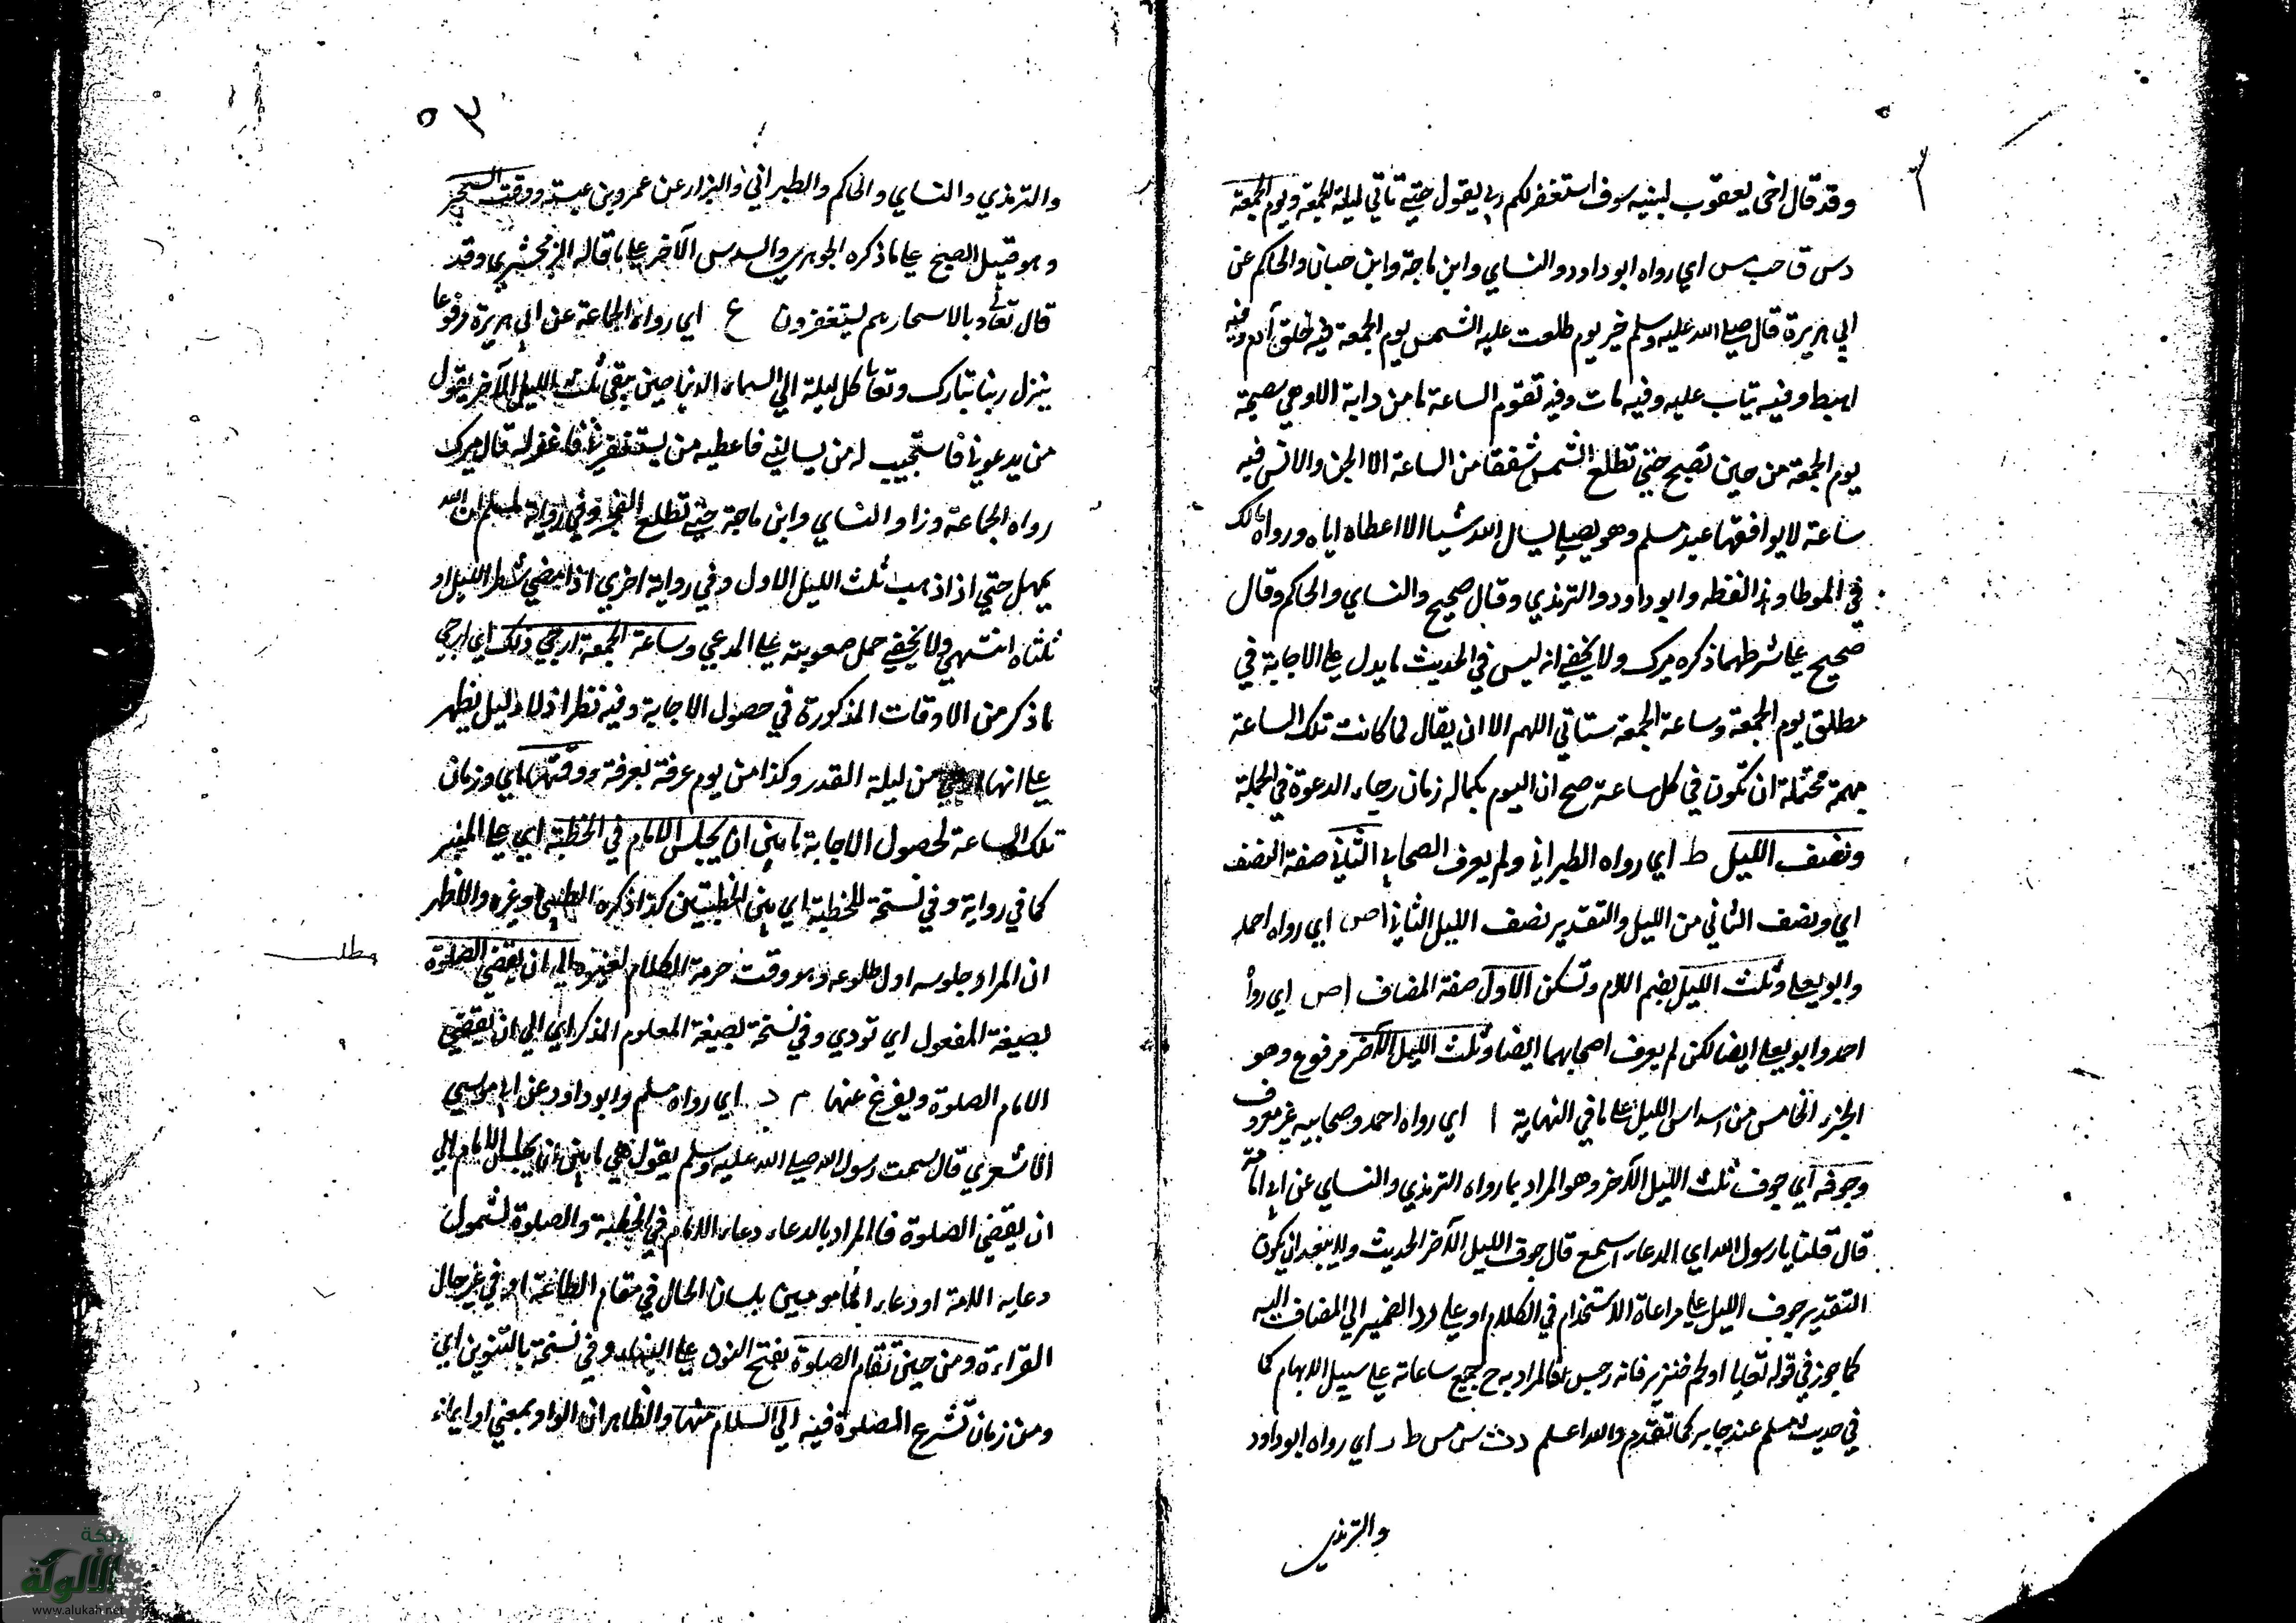 وقد قال اخى يعقوب لبنيه سوف استغفر لكم ربي يقول حتى تاتي ليلة الجمعة ويوم الجمعة
د س ق حب مس اي رواه ابو داود والنساي وابن ماجة وابن حبان والحاكم عن
ابي هريرة قال صلى الله عليه وسلم خير يوم طلعت عليه الشمس يوم الجمعة فيه خلق آدم وفيه
اهبط وفيه تيب عليه وفيه مات وفيه تقوم الساعة ما من دابة الا وهي مصيخة
يوم الجمعة من حين تصبح حتى تطلع الشمس شفقا من الساعة الا الجن والانس فيه
ساعة لا يوافقها عبد مسلم وهو يصلي يسال الله شيا الا اعطاه اياه ورواه مالك
في الموطا وهذا لفظه وابو داود والترمذي وقال صحيح والنساي والحاكم وقال
صحيح على شرطهما ذكره ميرك ولا يخفى انه ليس في الحديث ما يدل على الاجابة في
مطلق يوم الجمعة وساعة الجمعة ستاتي اللهم الا ان يقال لما كانت تلك الساعة
مبهمة محتملة ان تكون في كل ساعة صح ان اليوم بكماله زمان رجاء الدعوة في الجملة
ونصف الليل ط اي رواه الطبراني ولم يعرف الصحابي الثاني صفة النصف
اي ونصف الثاني من الليل والتقدير نصف الليل الثاني ا ص اي رواه احمد
وابو يعلى وثلث الليل بضم اللام وتسكن الاول صفة المضاف ا ص اي رواه
احمد وابو يعلى ايضا لكن لم يعرف اصحابهما ايضا وثلث الليل الآخر مرفوع وهو
الجزء الخامس من اسداس الليل على ما في النهاية ا اي رواه احمد وصحابيه غير معروف
وجوفه اي جوف ثلث الليل الآخر وهو المراد بما رواه الترمذي والنساي عن ابي امامة
قال قلنا يا رسول الله اي الدعاء اسمع قال جوف الليل الآخر الحديث ولا يبعد ان يكون
التقدير جوف الليل على مراعاة الاستخدام في الكلام او على رد الضمير الي المضاف اليه
كما جوز في قوله تعالى او لحم خنزير فانه رجس فالمراد به ح جميع ساعاته على سبيل الابهام كما
في حديث مسلم عند جابر كما تقدم والله اعلم د ت س مس ط ر اي رواه ابو داود
والترمذي
٥٣
والترمذي والنساي والحاكم والطبراني والبزار عن عمرو بن عبسة ووقت السحر
وهو قبيل الصبح على ما ذكره الجوهري والسدس الآخر على ما قاله الزمخشري وقد
قال تعالى وبالاسحار هم يستغفرون ع اي رواه الجماعة عن ابي هريرة مرفوعا
ينزل ربنا تبارك وتعالى كل ليلة الي السماء الدنيا حين يبقى ثلث الليل الآخر يقول
من يدعوني فاستجيب له من يسالني فاعطيه من يستغفرني فاغفر له قال ميرك
رواه الجماعة وزاد النساي وابن ماجة حتى تطلع الفجر وفي رواية لمسلم ان الله
يمهل حتى اذا ذهب ثلث الليل الاول وفي رواية اخرى اذا مضى شطر الليل او
ثلثاه انتهى ولا يخفى حمل صعوبته على المدعي وساعة الجمعة ارجى ذلك اي ارجى
ما ذكر من الاوقات المذكورة في حصول الاجابة وفيه نظر اذ لا دليل يظهر
على انها ارجى من ليلة القدر وكذا من يوم عرفة بعرفة ووقتها اي وزمان
تلك الساعة لحصول الاجابة ما بين ان يجلس الامام في الخطبة اي على المنبر
كما في رواية وفي نسخة للخطبة اي بين الخطبتين كذا ذكره الطيبي وغيره والاظهر
ان المراد جلوسه اول طلوعه وهو وقت حرمة الكلام لغيره الي ان يقضى الصلوة
مطلب
بصيغة المفعول اي تودي وفي نسخة بصيغة المعلوم المذكر اي الي ان يقضي
الامام الصلوة ويفرغ عنها م د اي رواه مسلم وابو داود عن ابي موسى
الاشعري قال سمعت رسول الله صلى الله عليه وسلم يقول هي ما بين ان يجلس الامام الي
ان يقضي الصلوة فالمراد بالدعاء دعاء الامام في الخطبة والصلوة لشمول
دعايه الامة او دعاء المامومين بلسان الحال في مقام الطاعة او في غير حال
القراءة ومن حين تقام الصلوة بفتح النون على البناء وفي نسخة بالتنوين اي
ومن زمان تشرع الصلوة فيه الي السلام منها والظاهر ان الواو بمعني او ايماء
شبكة
الألوكة
www.alukah.net